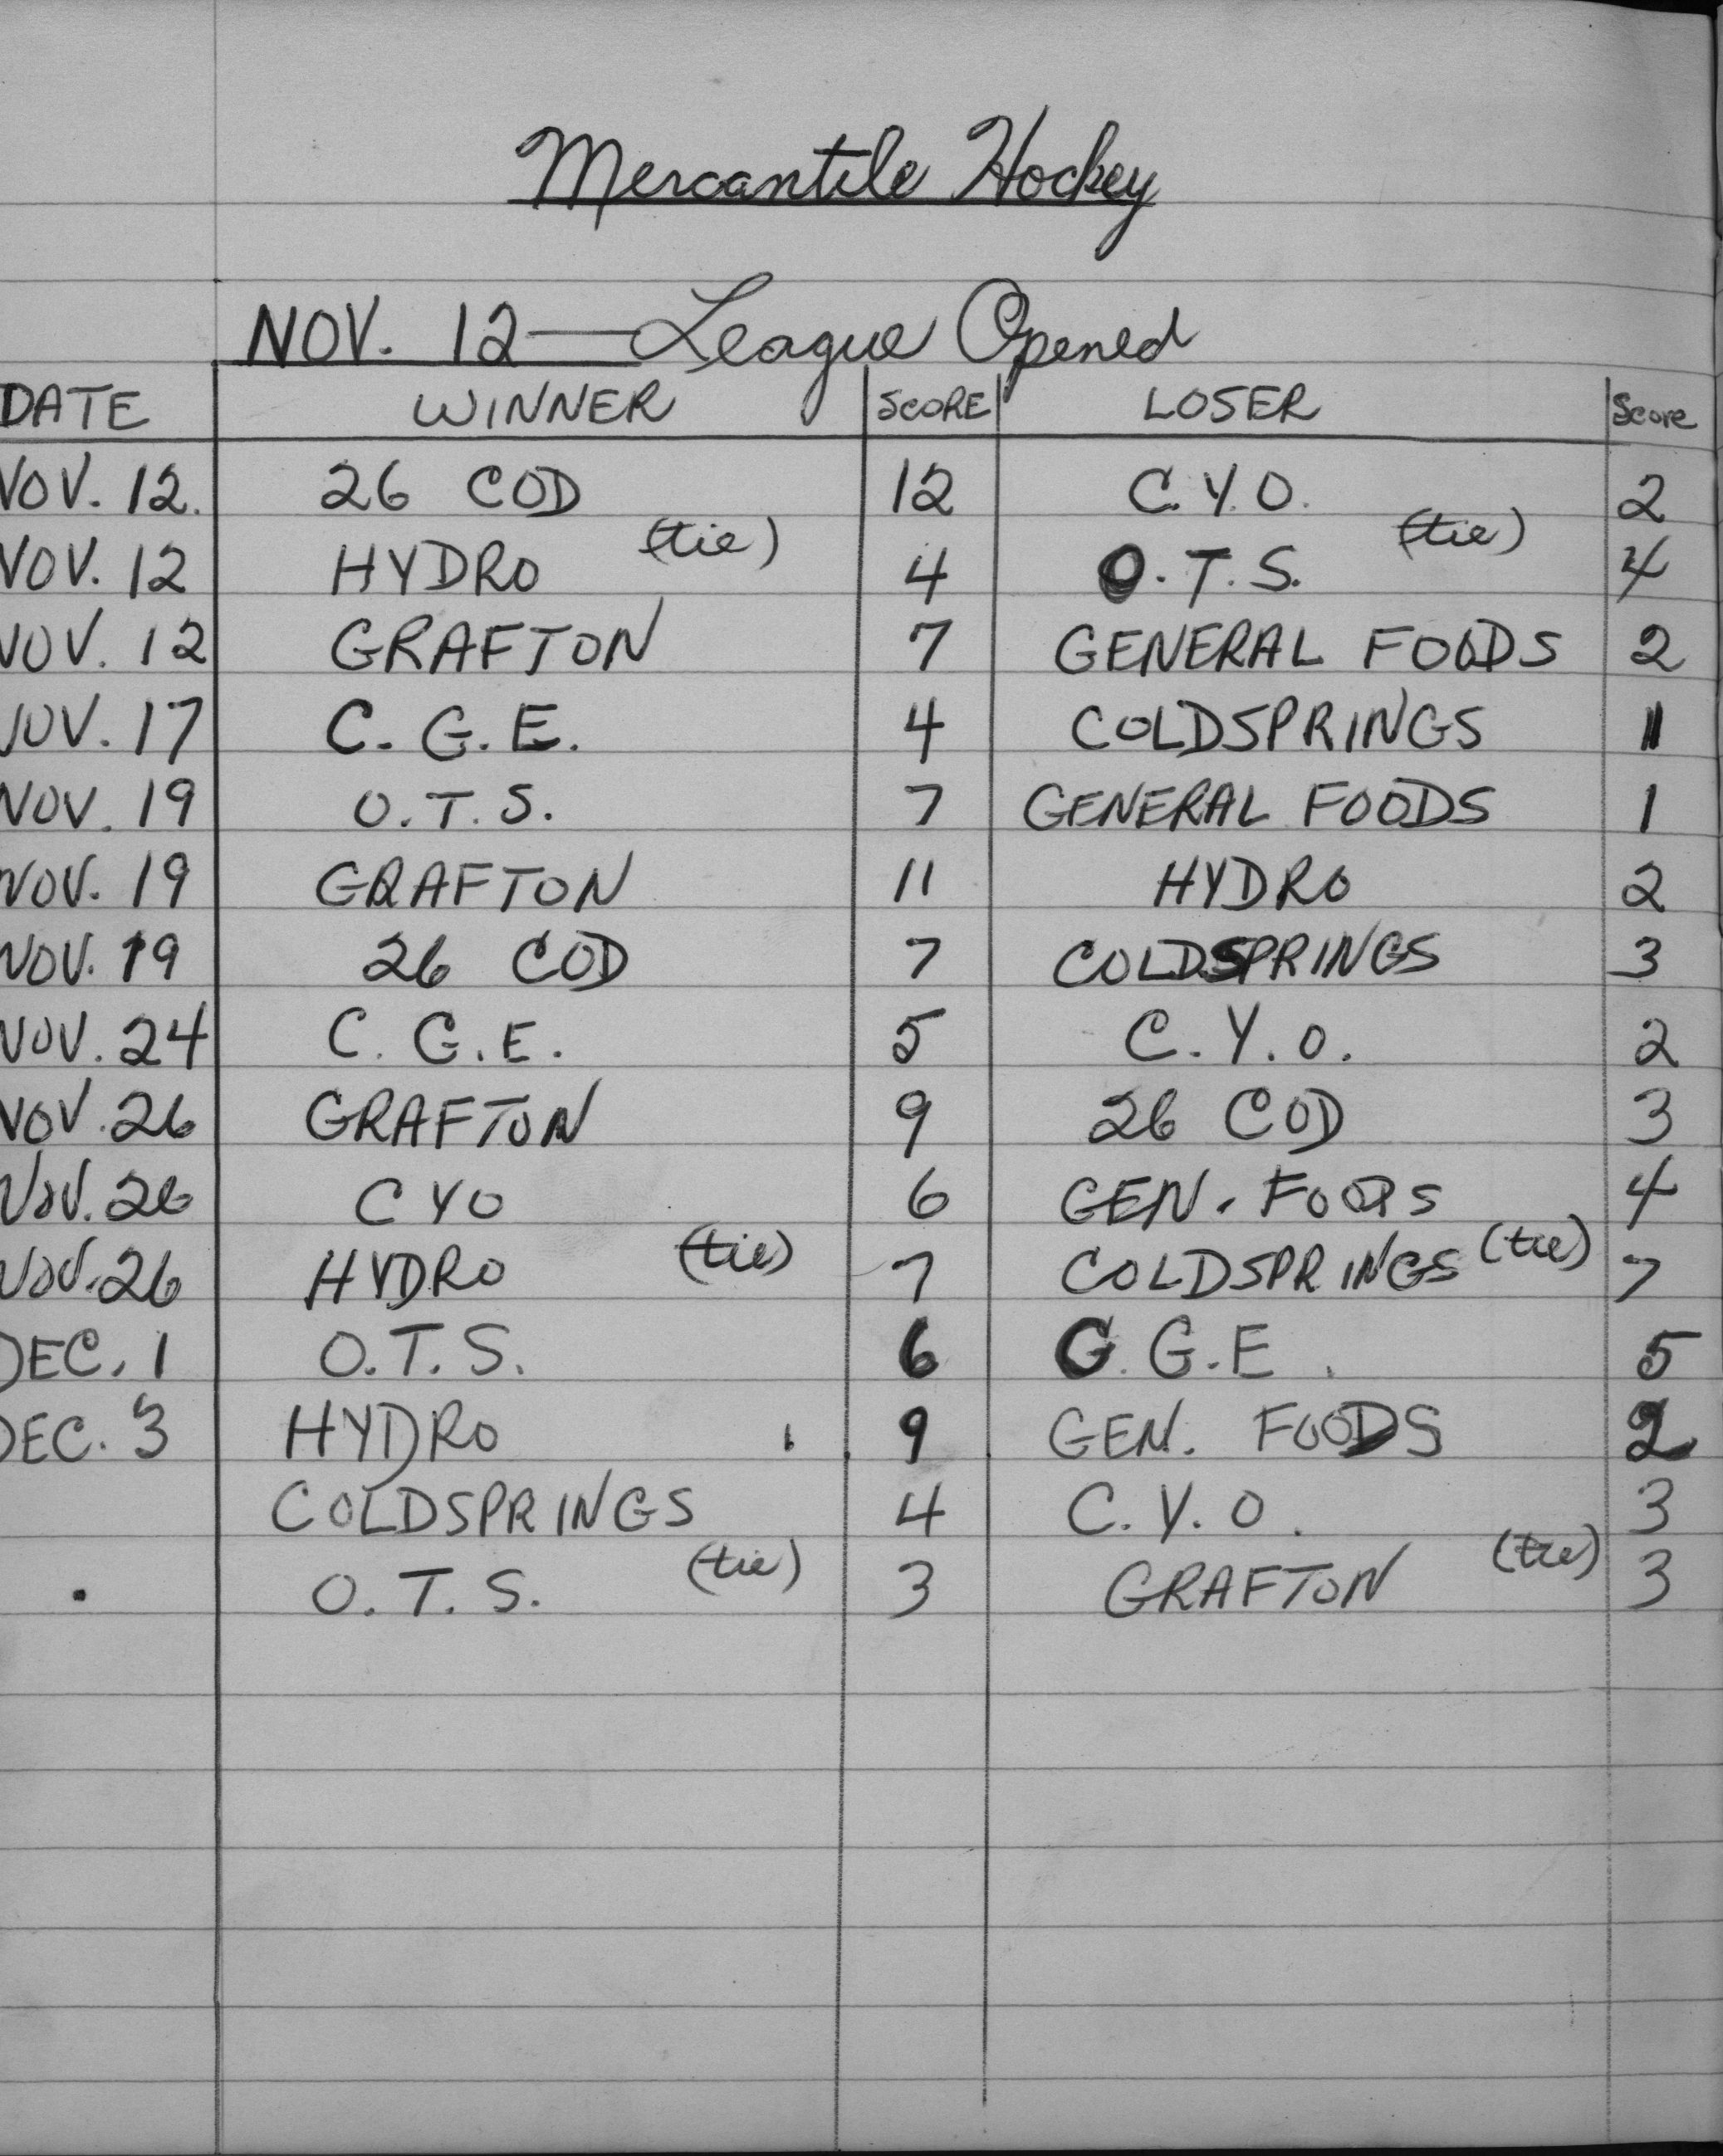 Mercantile Hockey
NOV. 12 — League Opened
DATE WINNER SCORE LOSER Score
NOV. 12. 26 COD 12 C.Y.O. 2
NOV. 12 HYDRO (tie) 4 O.T.S. (tie) 4
NOV. 12 GRAFTON 7 GENERAL FOODS 2
NOV. 17 C.G.E. 4 COLDSPRINGS 1
NOV. 19 O.T.S. 7 GENERAL FOODS 1
NOV. 19 GRAFTON 11 HYDRO 2
NOV. 19 26 COD 7 COLDSPRINGS 3
NOV. 24 C.G.E. 5 C.Y.O. 2
NOV. 26 GRAFTON 9 26 COD 3
NOV. 26 CYO 6 GEN. FOODS 4
NOV. 26 HYDRO (tie) 7 COLDSPRINGS (tie) 7
DEC. 1 O.T.S. 6 C.G.E. 5
DEC. 3 HYDRO 9 GEN. FOODS 2
COLDSPRINGS 4 C.Y.O. 3
O.T.S. (tie) 3 GRAFTON (tie) 3